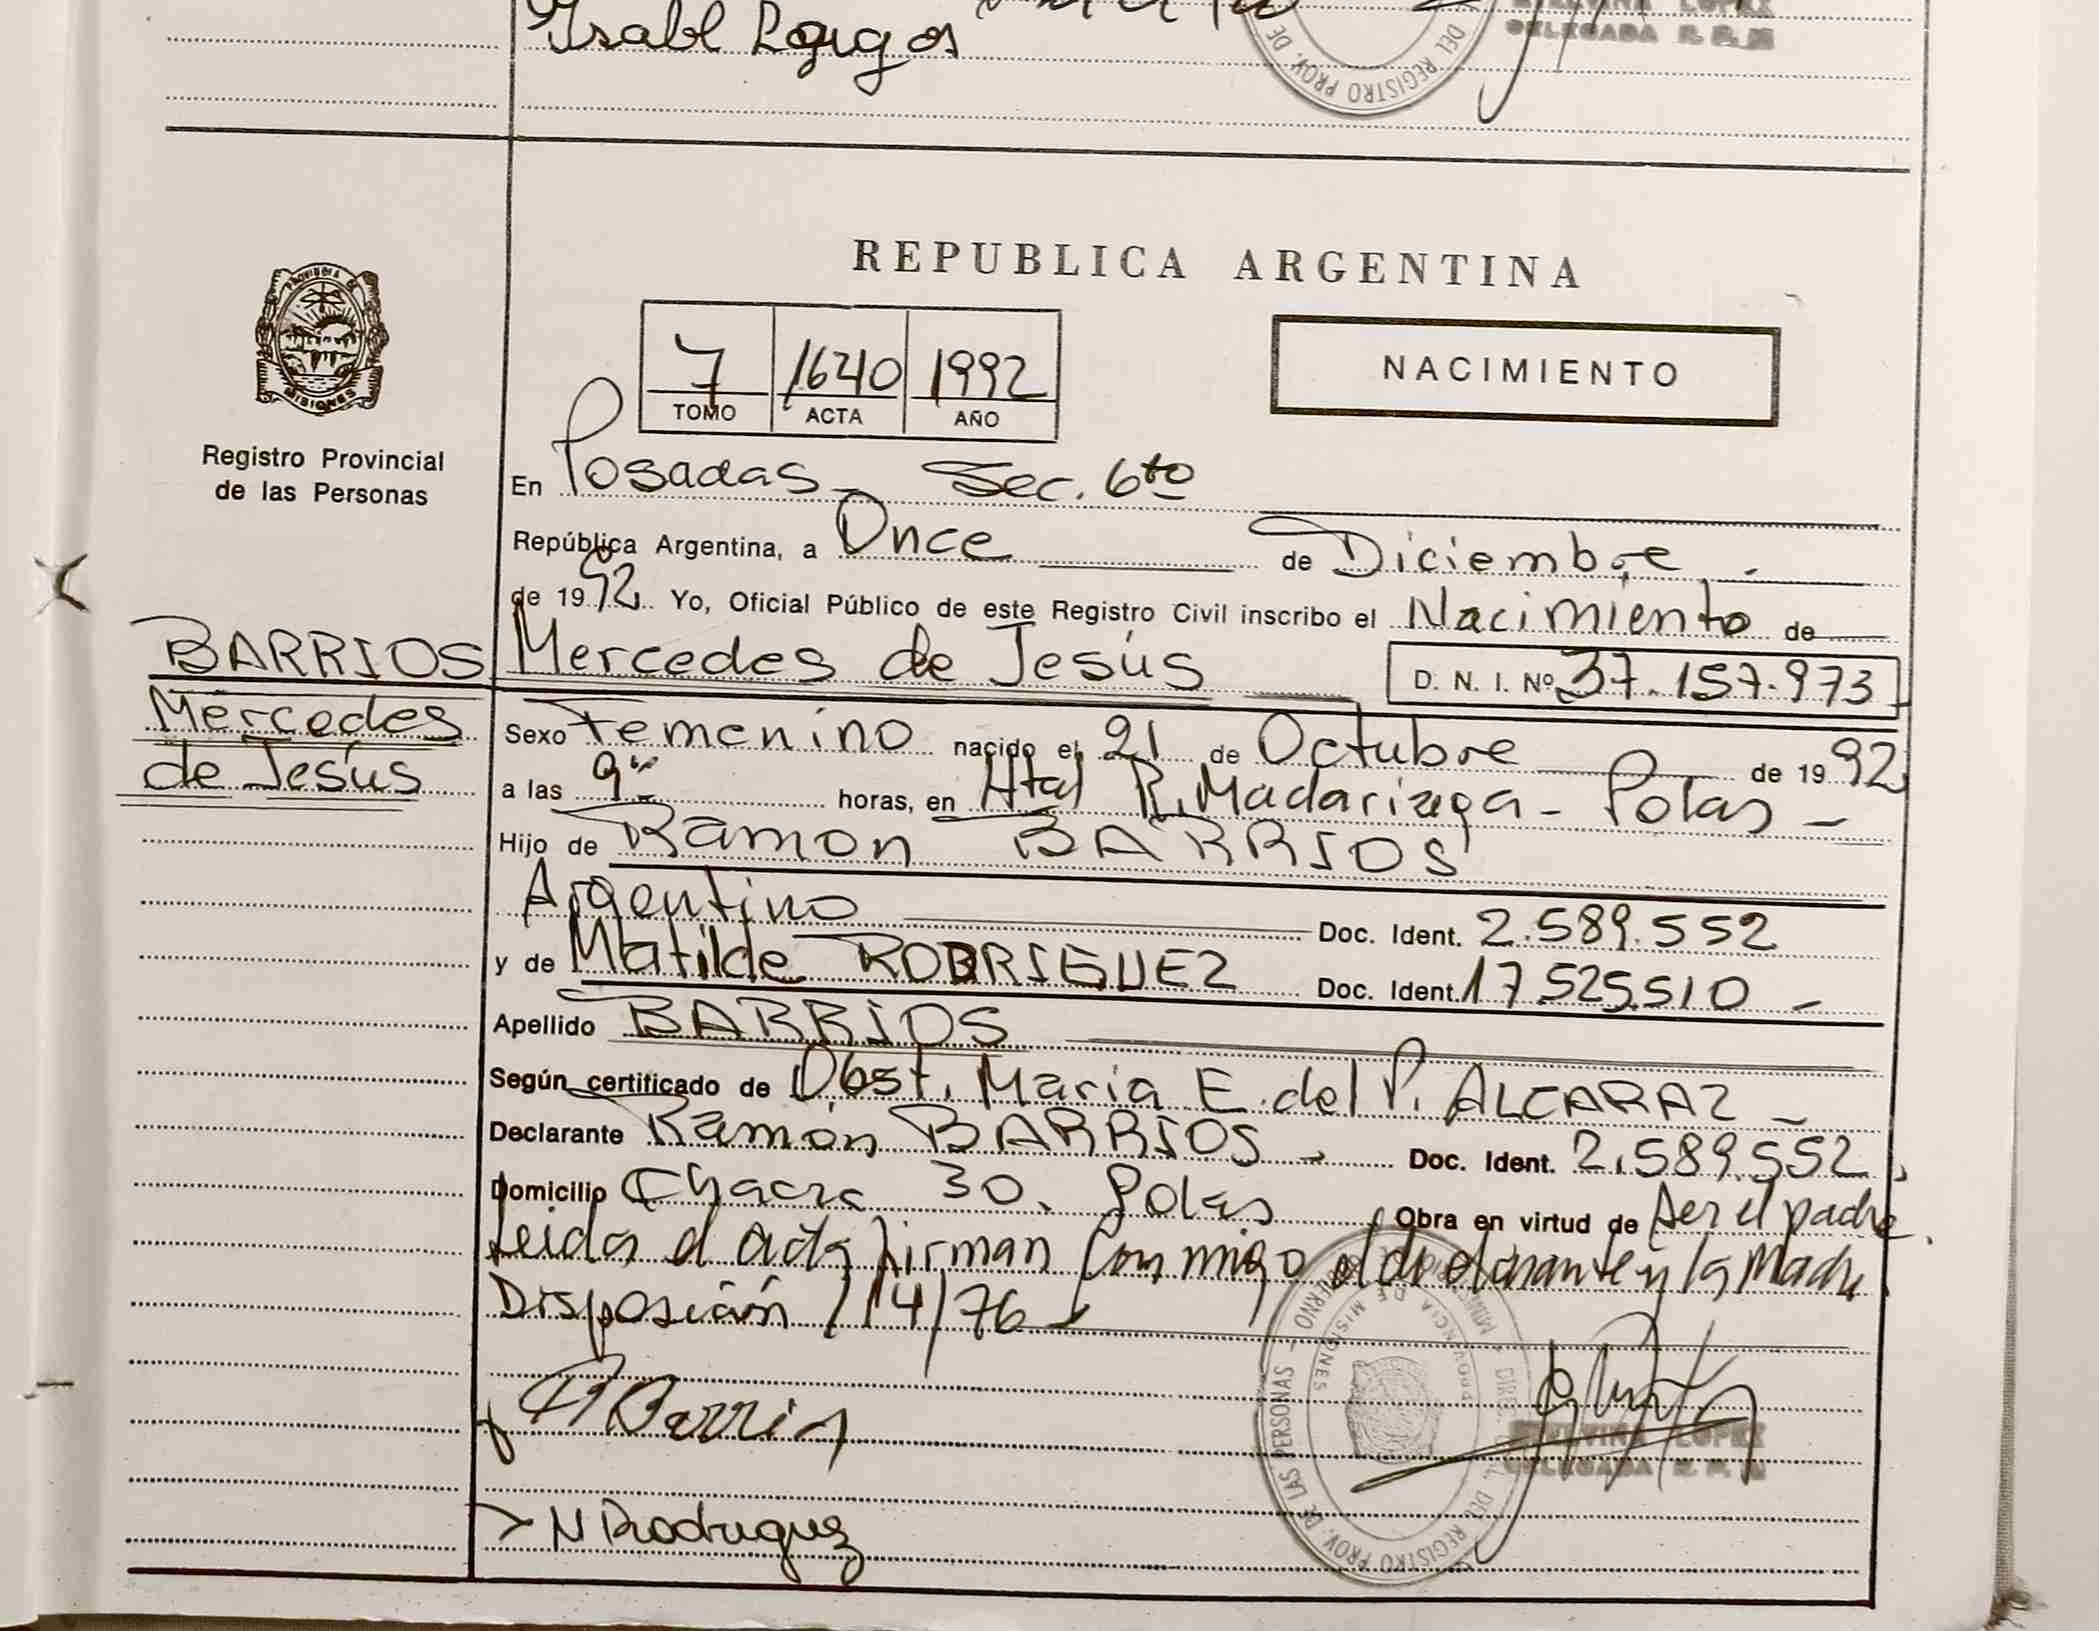 Isabl
DEL REGISTRO PROV. DE
LOPEZ
DELEGADA R. P. M
REPUBLICA ARGENTINA
PROVINCIA DE
MISIONES
7 1640 1992
TOMO ACTA AÑO
NACIMIENTO
Registro Provincial
de las Personas
En Posadas - Sec. 6to
República Argentina, a Once de Diciembre.
de 1992. Yo, Oficial Público de este Registro Civil inscribo el Nacimiento de
BARRIOS
Mercedes
de Jesús
Mercedes de Jesús D. N. I. Nº 37.157.973
Sexo Femenino nacido el 21 de Octubre de 1992
a las 9 horas, en Htal R. Madariaga - Pdas -
Hijo de Ramon BARRIOS
Argentino Doc. Ident. 2.589.552
y de Matilde RODRIGUEZ Doc. Ident. 17.525.510 -
Apellido BARRIOS
Según certificado de Obst. Maria E. del P. ALCARAZ -
Declarante Ramón BARRIOS - Doc. Ident. 2.589.552
Domicilio Chacra 30. Pdas Obra en virtud de ser el padre.
Leida el acta firman conmigo el declarante y la Madre
Disposición 114/76
Barrios
M Rodriguez
PROVINCIA DE MISIONES
DEL REGISTRO PROV. DE LAS PERSONAS - 
LOPEZ
DELEGADA R. P.